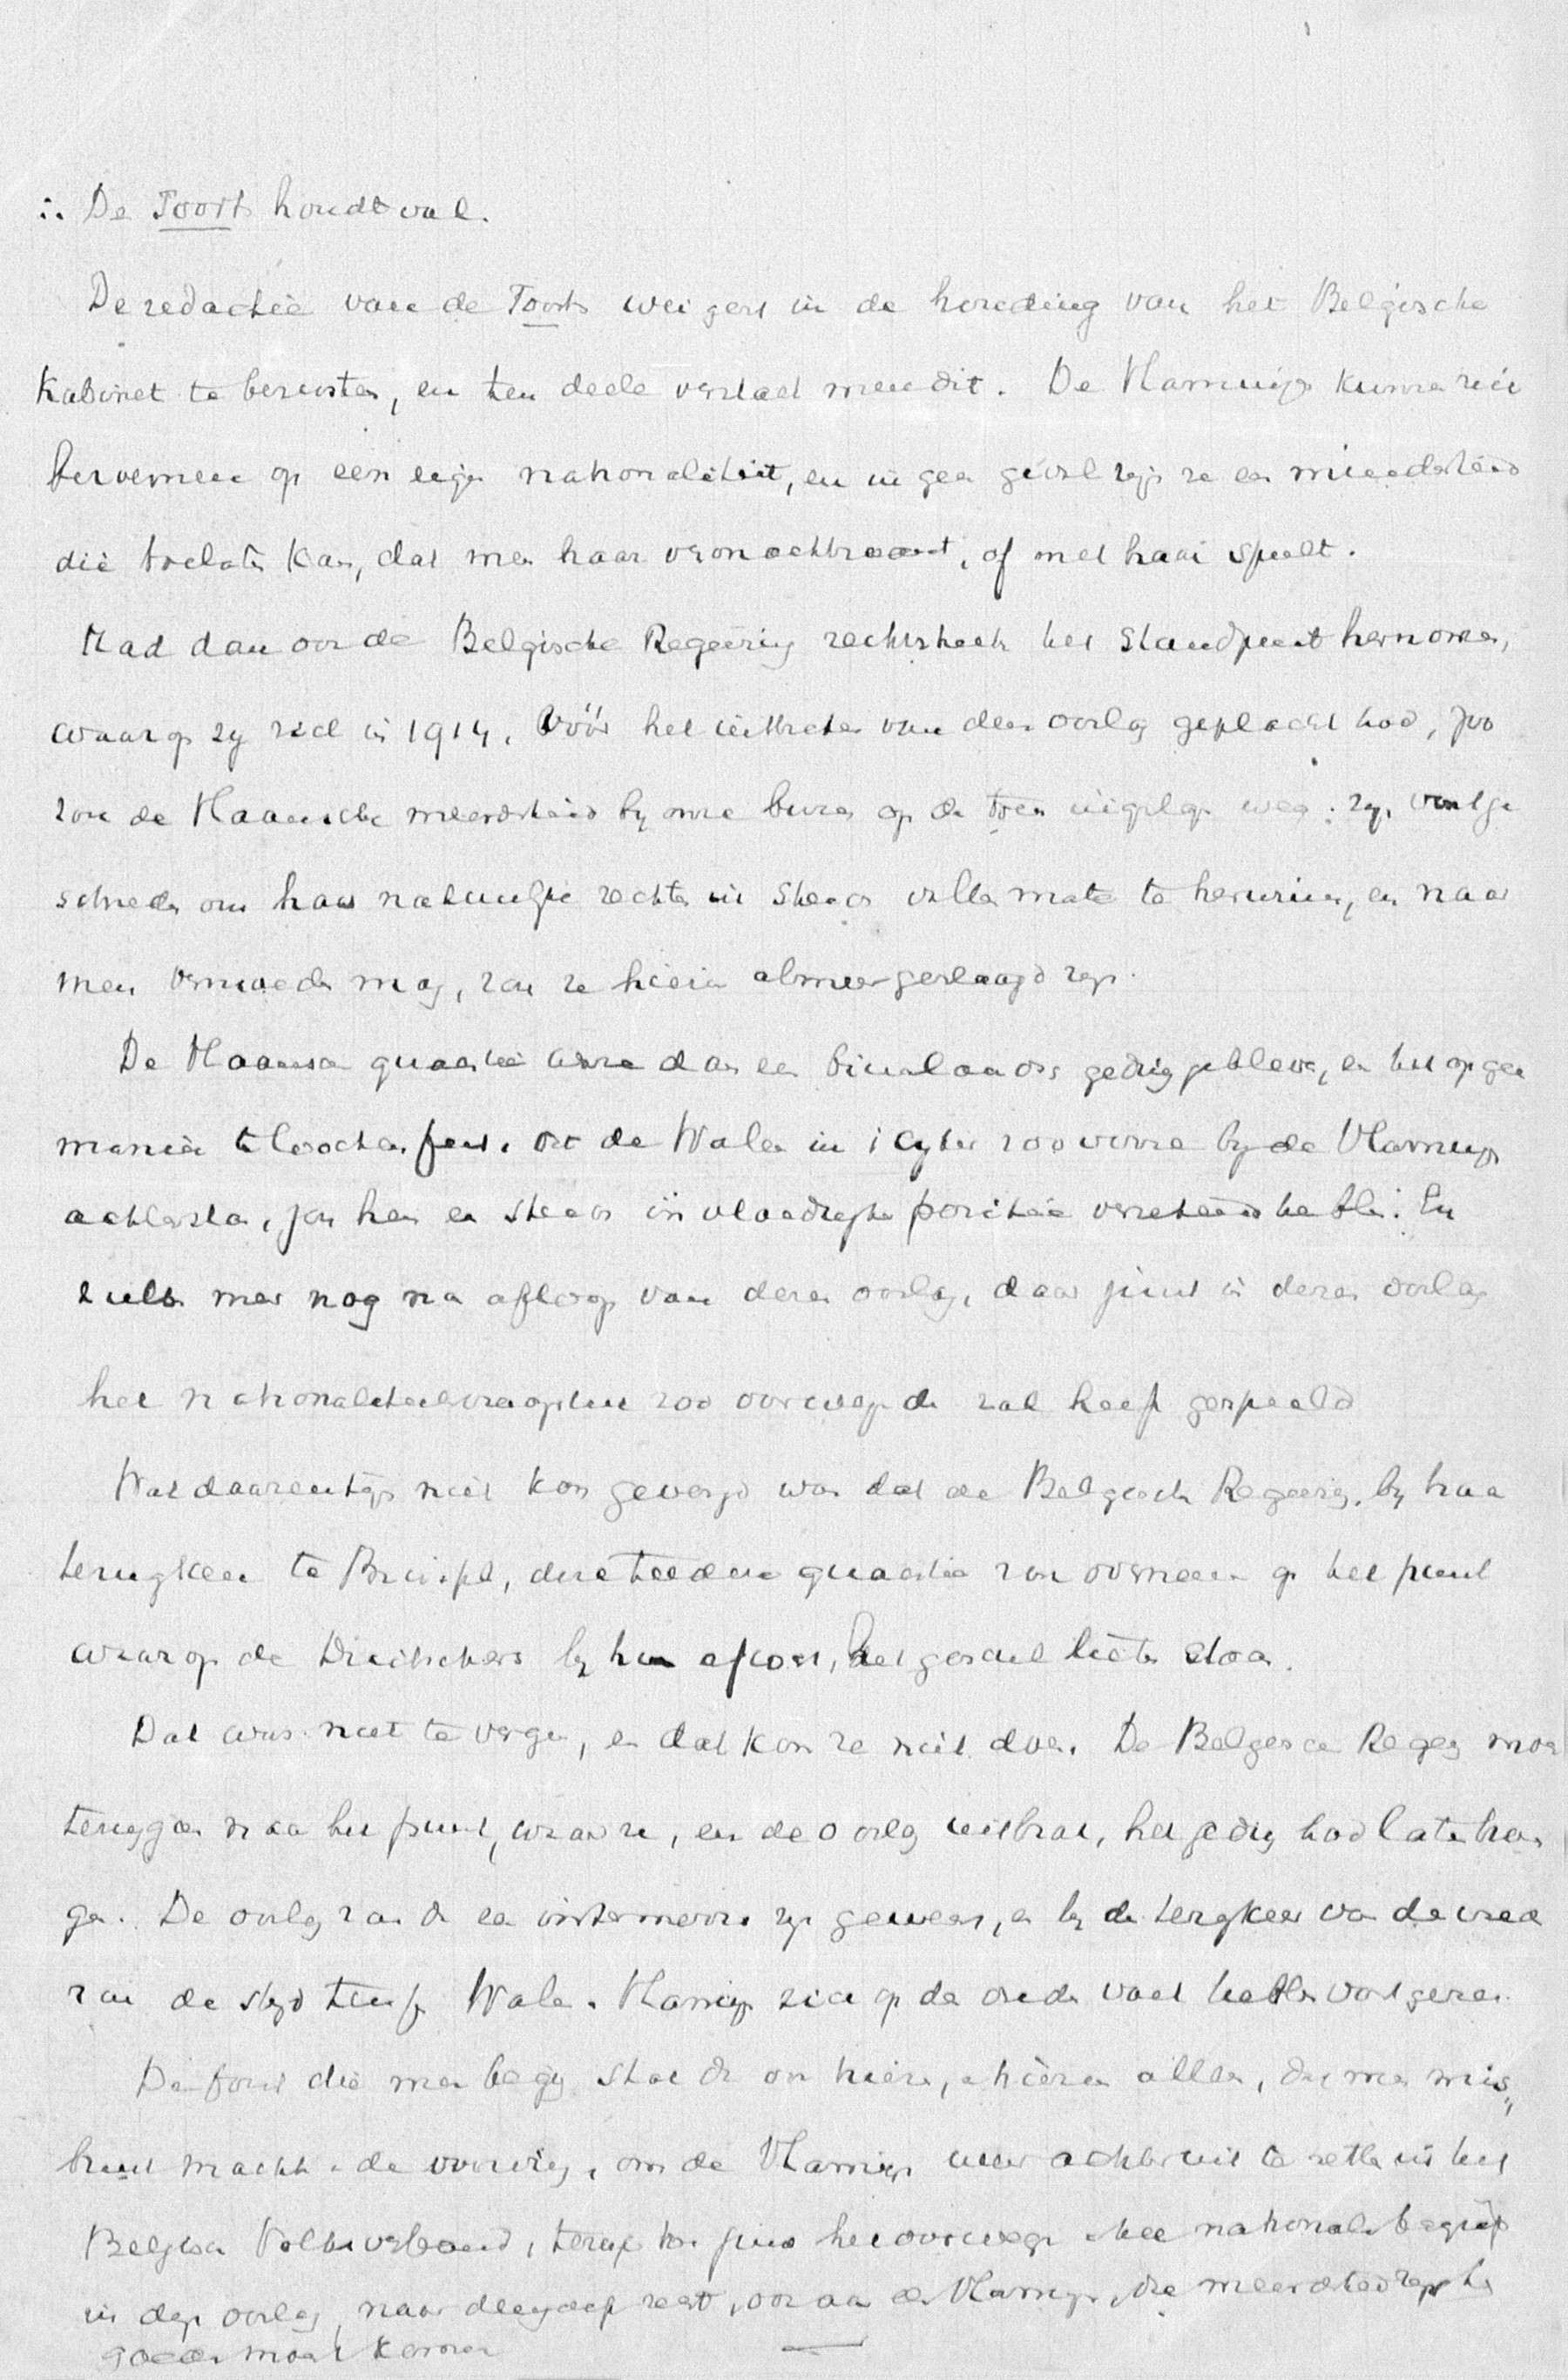 ∴ De Toorts houdt vol.
De redactie van de Toorts weigert in de houding van het Belgische
Kabinet te berusten, en ten deele verstaat men dit. De Vlamingen kunnen zich
beroemen op een eigen nationaliteit, en in geen geval zijn ze een minderheid
die toelaten kan, dat men haar veronachtzaamt, of met haar speelt.
Had dan ook de Belgische Regeering rechtstreeks het standpunt hernomen,
waarop zij zich in 1914, vóór het uitbreken van den oorlog geplaatst had, zoo
zou de Vlaamsche meerderheid bij onze buren op de toen ingeslagen weg zijn voortge
schreden om haar natuurlijke rechten in steeds voller mate te herwinnen, en naar
men vermoeden mag, zou ze hierin almeer geslaagd zijn.
De Vlaamsche quaestie ware dan een binnenlandsch geding gebleven, en het op geen
manier te loochenen feit, dat de Walen in cijfer zoo verre bij de Vlamingen
achterstaan, zou hen een steeds invloedrijker positie verzekerd hebben. En
zulks meer nog na afloop van dezen oorlog, daar juist in dezen oorlog
het nationaliteitsvraagstuk zoo overwegende rol heeft gespeeld
Wat daarentegen niet kon gevergd was dat de Belgische Regeering, bij haar
terugkeer te Brussel, deze teedere quaestie zou overnemen op het punt
waarop de Duitschers bij hun aftocht, het geschil lieten staan.
Dat was niet te vergen, en dat kon ze niet doen. De Belgische Regeering moest
teruggaan naar het punt, waar ze, eer de oorlog uitbrak, het geding had laten han
gen. De oorlog zou dan een intermezzo zijn geweest, en bij de terugkeer van de vrede
zou de strijd tusschen Walen en Vlamingen zich op de oude voet hebben voortgezet.
De fout die men beging stak dan ook hierin, en hierin alleen, dat men mis„
bruik maakte van de voorwending, om de Vlamingen weer achteruit te zetten in het
Belgisch Volksverband, terwijl toch juist het overwegen van het nationale begrip
in dezen oorlog, naar deugdelijk recht, ook aan de Vlamingen, die meerderheid zijn, ten
goede moest komen